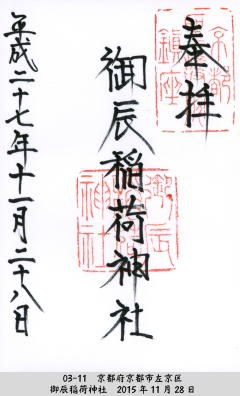 奉拝
御辰稲荷神社
平成二十七年十一月二十八日
03-11 京都府京都市左京区
御辰稲荷神社 2015年11月28日